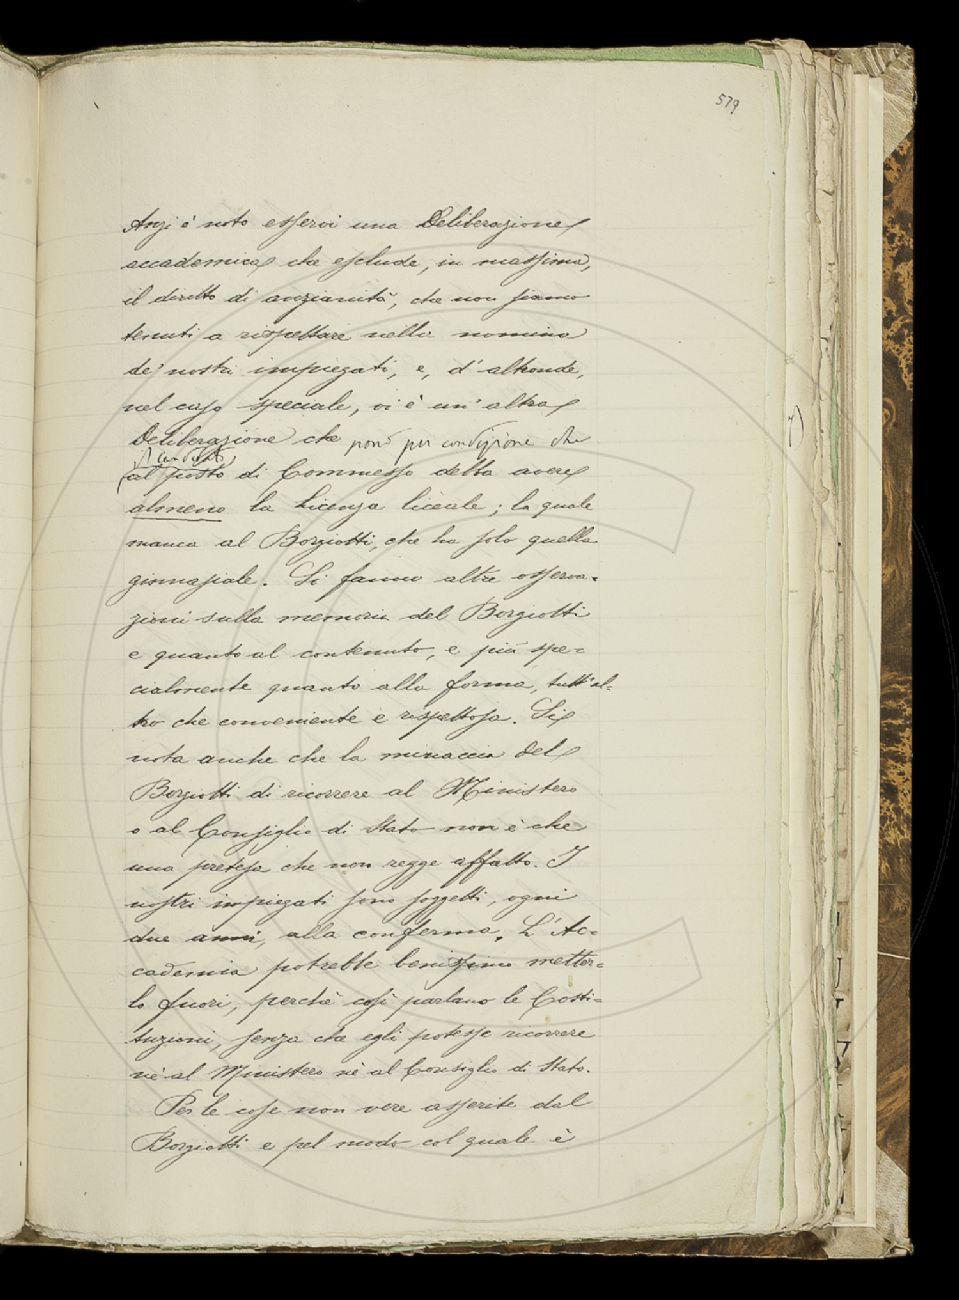 579
Anzi è noto esservi una Deliberazione
accademica che esclude, in massima,
il diritto di anzianità, che non siamo
tenuti a rispettare nella nomina
de' nostri impiegati, e, d'altronde,
nel caso speciale, vi è un'altra
Deliberazione che pone per condizione che
il candidato
al posto di Commesso debba avere
almeno la Licenza liceale; la quale
manca al Borgiotti, che ha solo quella
ginnasiale. Si fanno altre osserva-
zioni sulla memoria del Borgiotti
e quanto al contenuto, e più spe-
cialmente quanto alla forma, tutt'al-
tro che conveniente e rispettosa. Si
nota anche che la minaccia del
Borgiotti di ricorrere al Ministero
o al Consiglio di Stato non è che
una pretesa che non regge affatto. I
nostri impiegati sono soggetti, ogni
due anni, alla conferma. L'Ac-
cademia potrebbe benissimo metter-
lo fuori, perchè così parlano le Costi-
tuzioni, senza che egli potesse ricorrere
nè al Ministero nè al Consiglio di Stato.
Per le cose non vere asserite dal
Borgiotti e pel modo col quale è